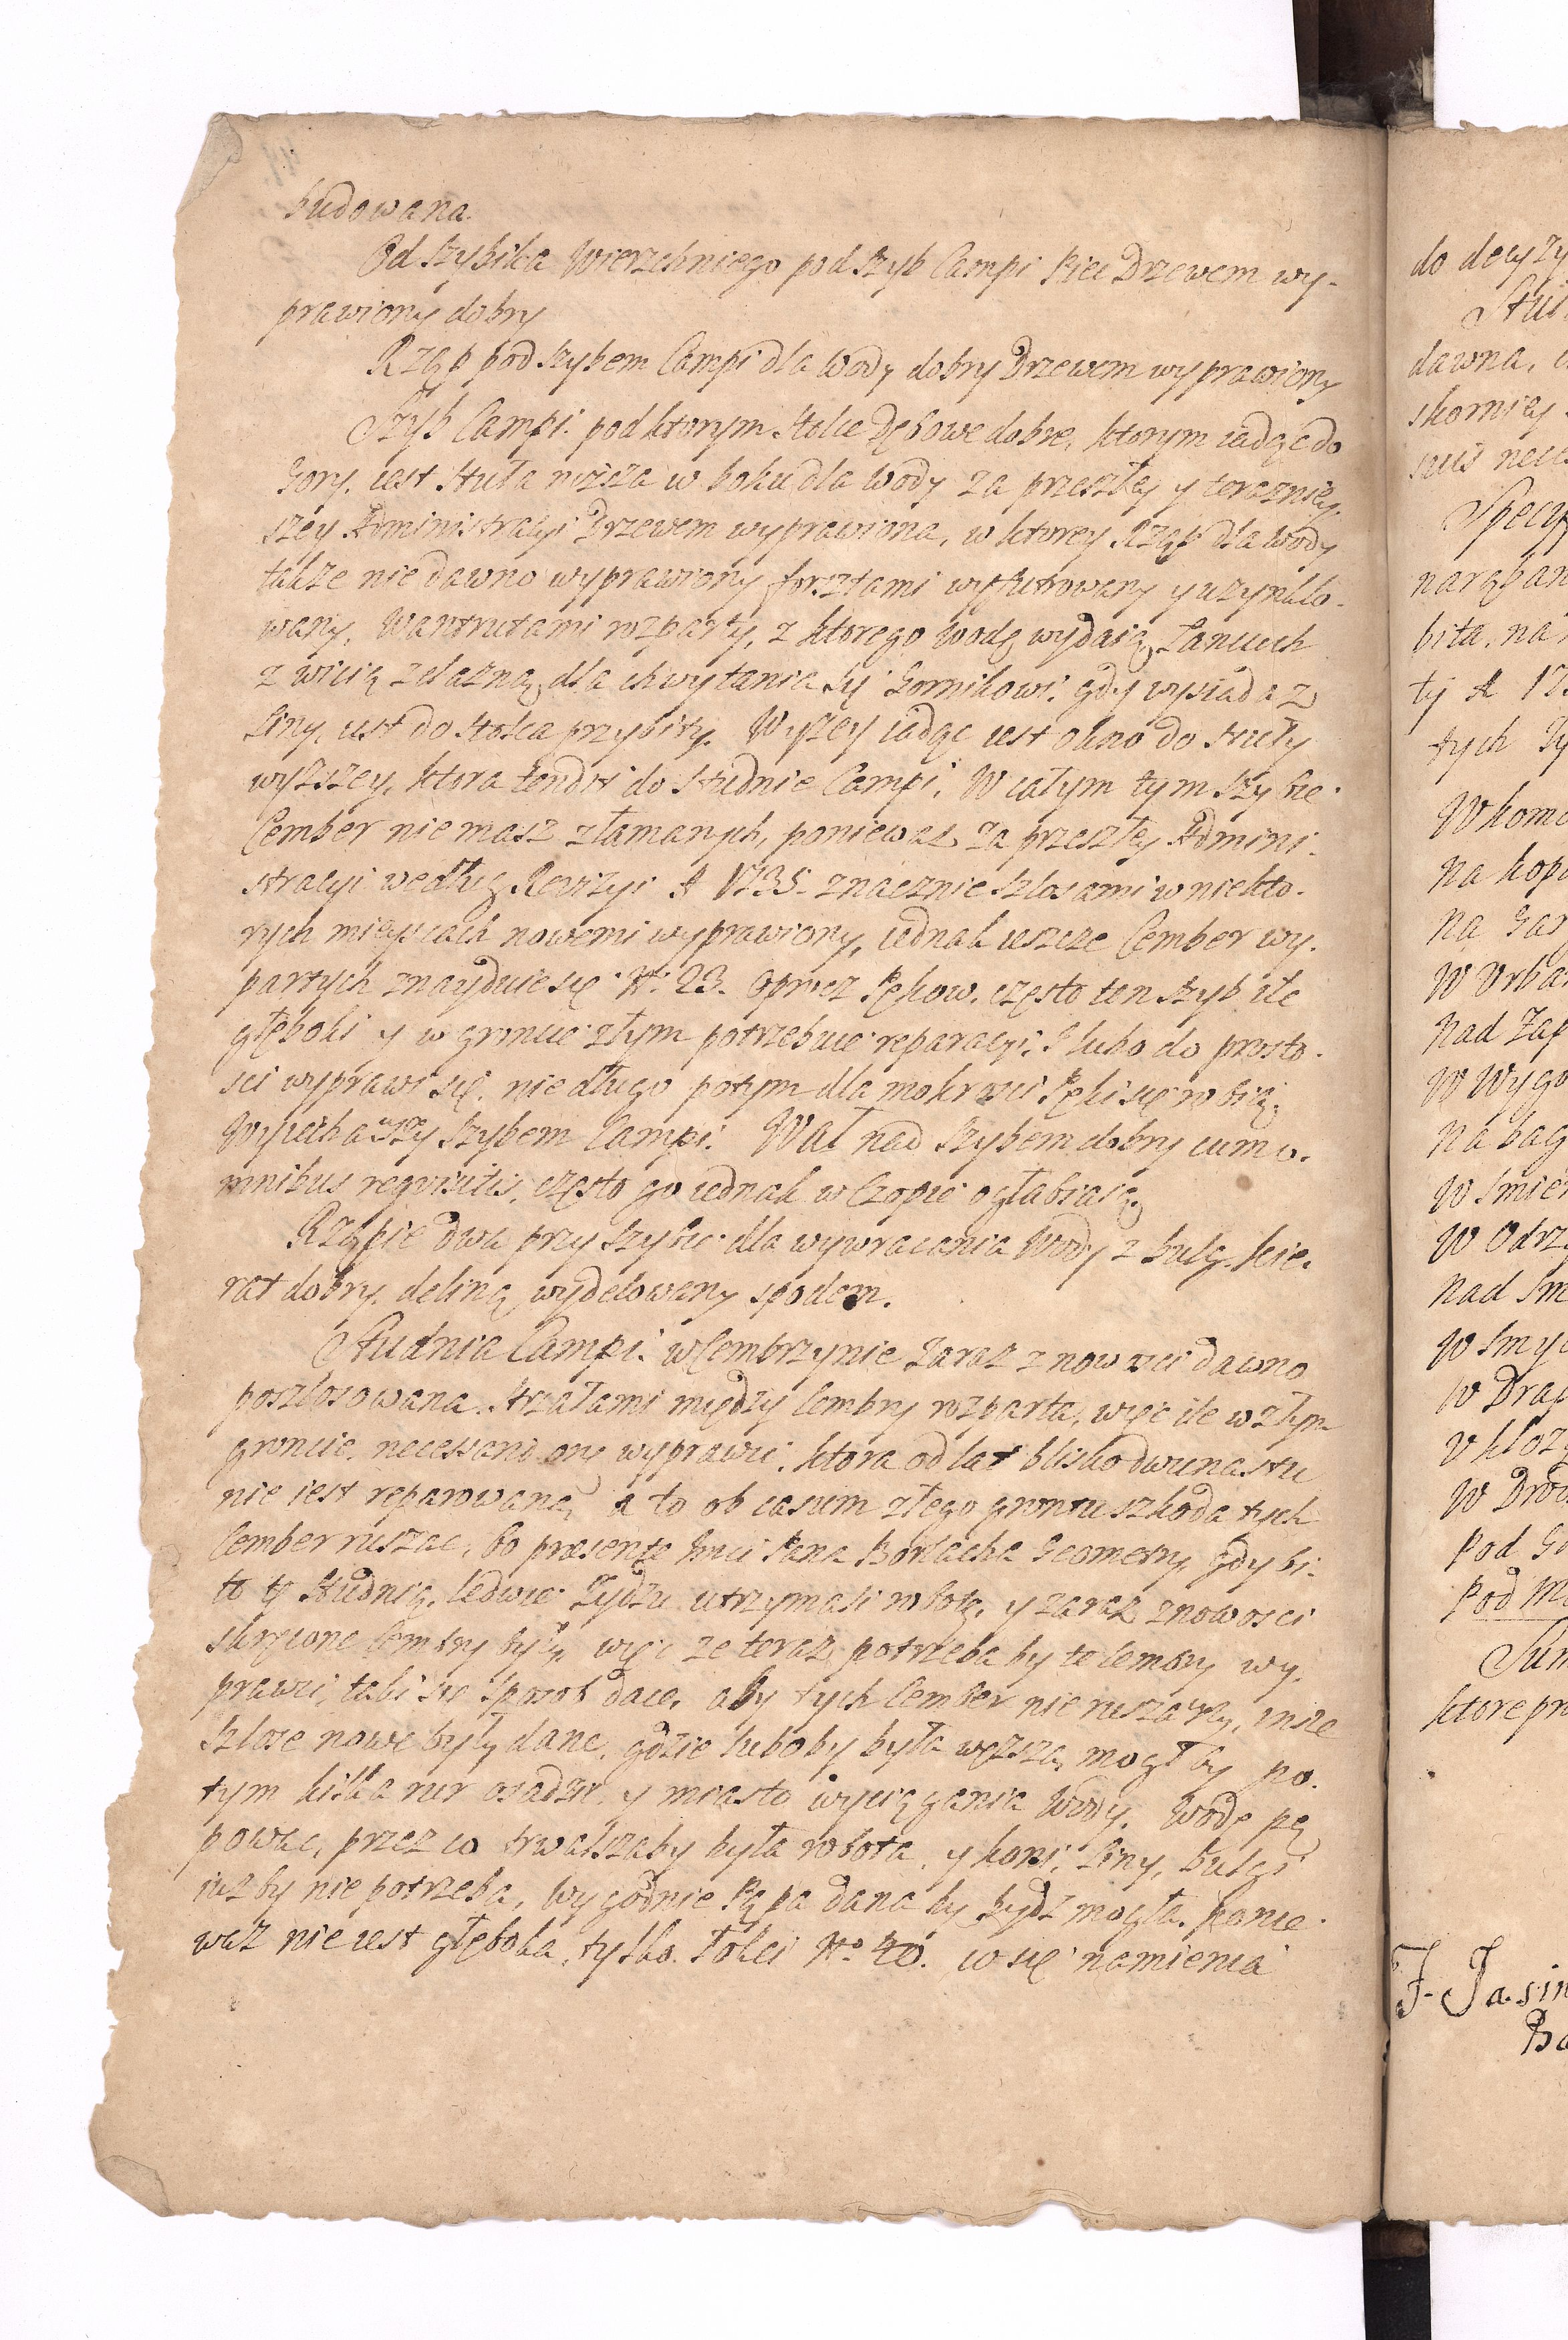 budowana.
Od Szybika Wierzchniego pod Szyb Campi Piec Drzewem wy-
prawiony dobry
Rząp pod Szybem Campi dla Wody dobry Drzewem wyprawiony
Szyb Campi. pod ktorym Stolce Dębowe dobre, ktorym iadąc do
Gory, iest Stuła niższa w boku dla Wody za przeszłey y terazniey-
szey Administracyi Drzewem wyprawiona, w ktorey Rząp dla Wody
także nie dawno wyprawiony forsztami wyfutrowany y uzynklo-
wany, Wantrutami rozparty, z ktorego Wodę wydaią, Łancuch
z wicią zelazną, dla chwytania się Gornikowi. gdy wysiada z
Liny, iest do Stolca przybity. Wyszey iadąc iest okno do Stuły
wyższey, ktora tendit do Studnie Campi. W całym tym Szybie
Cember nie masz złamanych, poniewaz za przeszłey Admini-
stracyi według Rewizyi A 1735. znacznie Szlosami w niekto-
rych mieyscach nowemi wyprawiony, iednak ieszcze Cember wy-
partych znayduie się No. 23. oprucz Pękow. często ten szyb ile
głęboki y w groncie złym potrzebuie reparacyi, I lubo do prosto-
sci wyprawi się, nie długo potym dla mokrosci Pęki się robią.
Wyiechawszy Szybem Campi. Wał nad Szybem dobry cum o-
mnibus requisitis, często go iednak w Czopie ogłabiaią.
Rząpie dwa przy Szybie dla wywracania Wody z bulg. Kie-
rat dobry, deliną wydelowany spodem.
Studnia Campi. w Cembrzynie zaraz z nowosci dawno
poszlosowana. Strzałami między Cembry rozparta, więc ile w złym
groncie, necessario onę wyprawic. ktora od lat blisko dwunastu
nie iest reparowana, a to ob casum złego grontu szkoda tych
Cember ruszac, bo praesente Imci Pana Borlacha Geometry, gdy bi-
to tę Studnią, ledwie Zydzi utrzymali robotę, y zaraz z nowosci
skrzione Cembry były, więc ze teraz potrzeba by te Cembry wy-
prawic, taki się sposob daie, aby tych Cember nie ruszaiąc, insze
Szlose nowe były dane, gdzie luboby była węższa, mogł by po-
tym kilka rur osadzic, y miasto wyciągania Wody, Wodę pą
powac, przez co trwalszaby była robota, y koni, Liny, bulgi
iuzby nie potrzeba, wygodnie Pąpa dana by bydz mogła, ponie-
waz nie iest głęboka, tylko Łokci No 40. co się namienia
do decyzy
dawna,
Specyf
tych
W Drap
F. Jasin
ktore pr